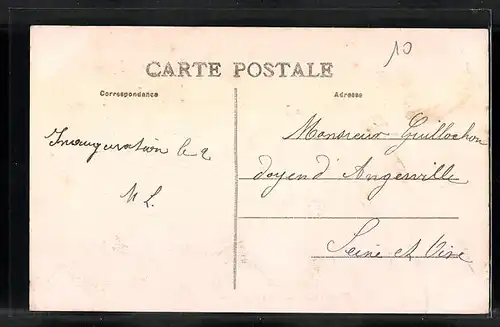 10
CARTE POSTALE
Correspondance
Adresse
Inauguration le 2
M L.
Monsieur Guillochon
doyen d'Angerville
Seine et Oise